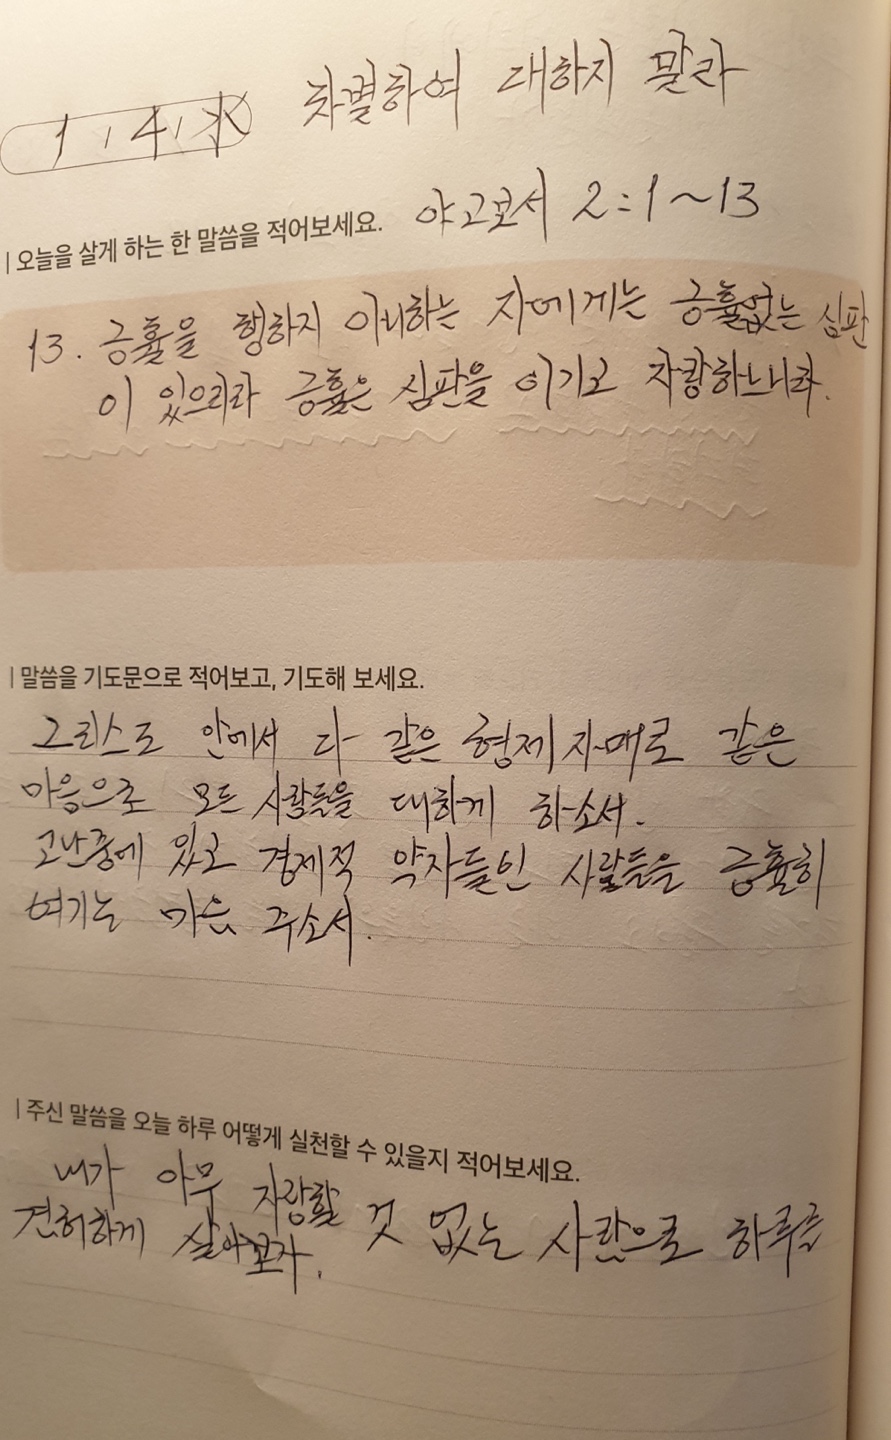 1, 4, 水 차별하여 대하지 말라
| 오늘을 살게 하는 한 말씀을 적어보세요. 야고보서 2:1~13
13. 긍휼을 행하지 아니하는 자에게는 긍휼없는 심판
이 있으리라 긍휼은 심판을 이기고 자랑하느니라.
| 말씀을 기도문으로 적어보고, 기도해 보세요.
그리스도 안에서 다 같은 형제자매로 같은
마음으로 모든 사람들을 대하게 하소서.
고난중에 있고 경제적 약자들인 사람들을 긍휼히
여기는 마음 주소서.
| 주신 말씀을 오늘 하루 어떻게 실천할 수 있을지 적어보세요.
내가 아무 자랑할 것 없는 사람으로 하루를
겸허하게 살아보자.